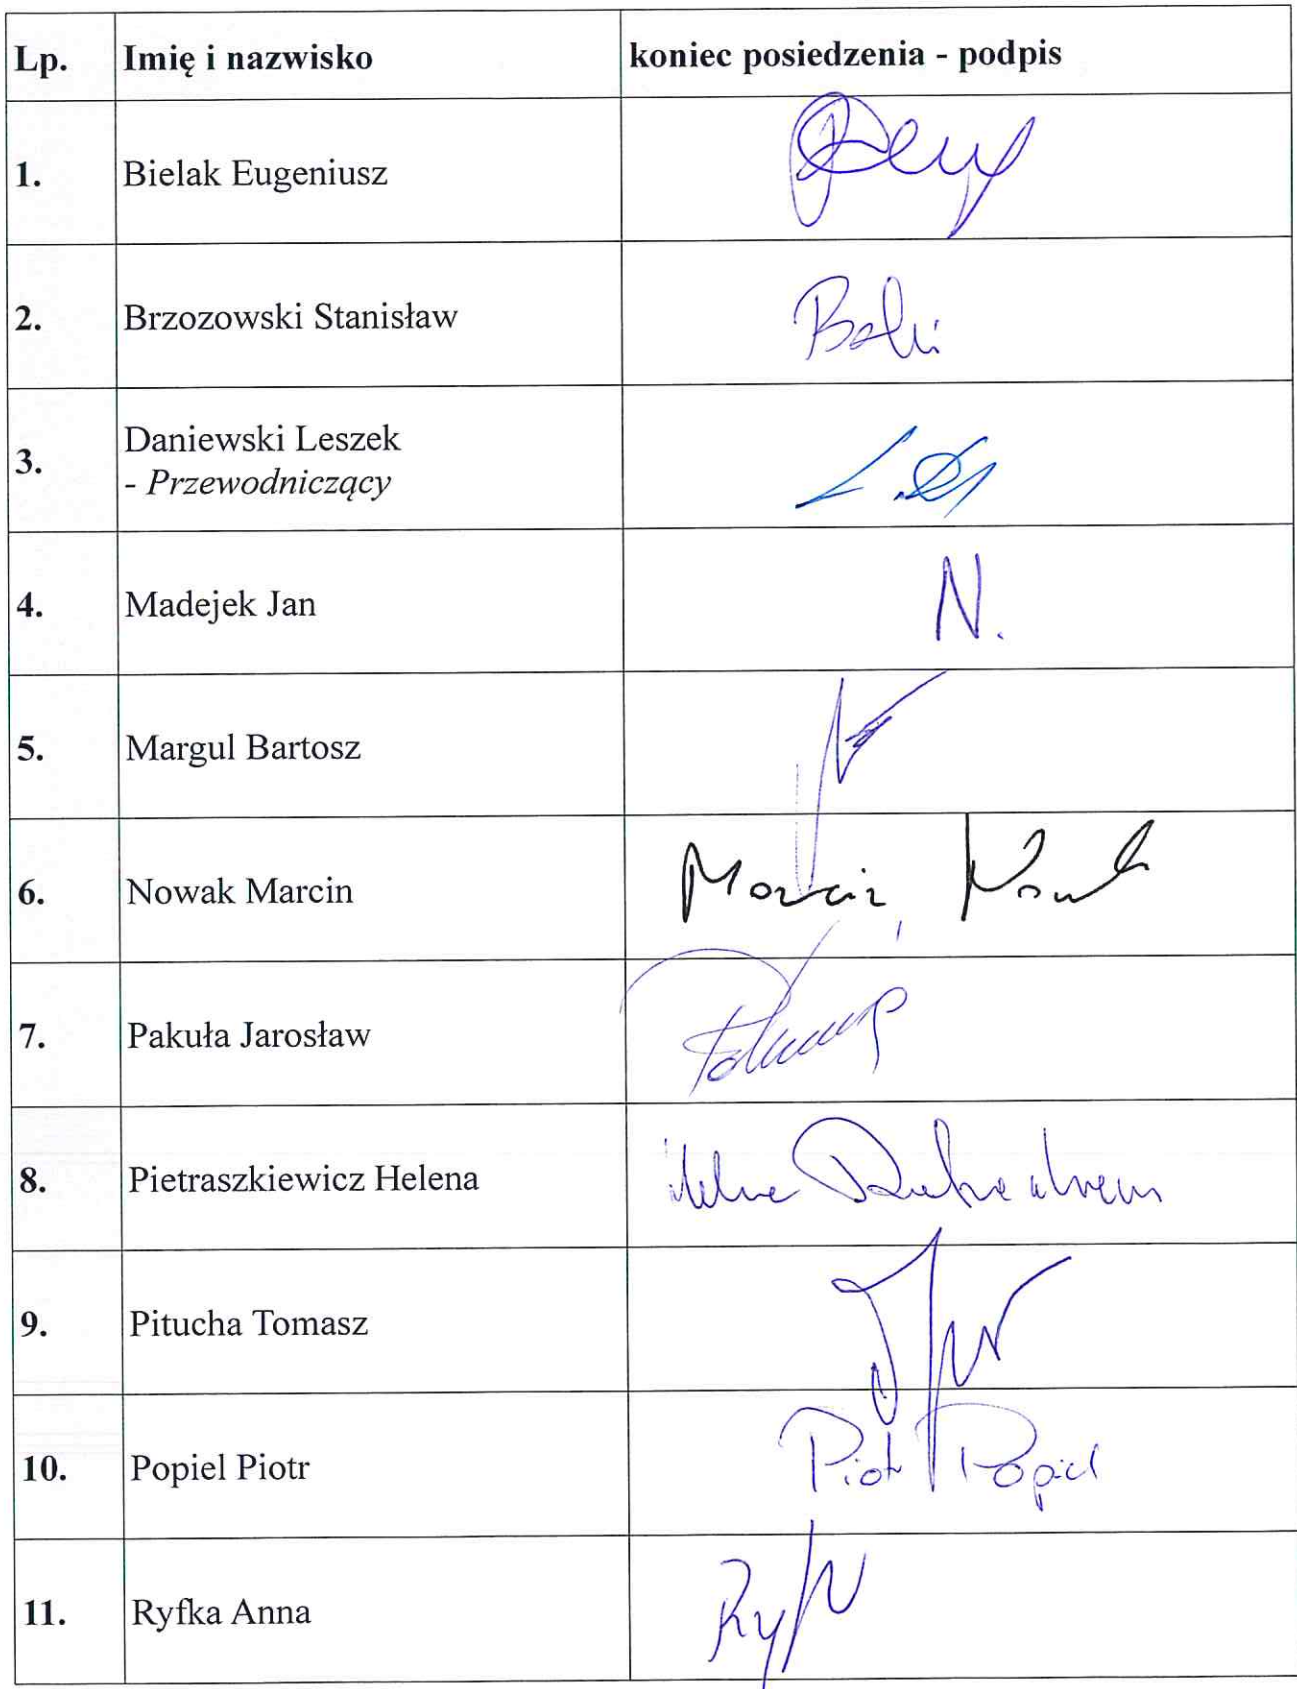 Lp. Imię i nazwisko koniec posiedzenia - podpis
1. Bielak Eugeniusz
2. Brzozowski Stanisław
3. Daniewski Leszek
- Przewodniczący
4. Madejek Jan N.
5. Margul Bartosz
6. Nowak Marcin Marcin Nowak
7. Pakuła Jarosław
8. Pietraszkiewicz Helena
9. Pitucha Tomasz
10. Popiel Piotr Piotr Popiel
11. Ryfka Anna